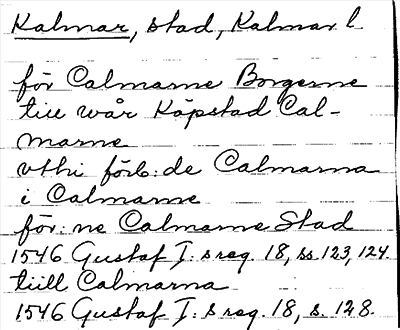 Kalmar, stad, Kalmar l.
för Calmarne Borgerne
till wår Köpstad Cal-
marne
vthi förb:de Calmarna
i Calmarne
för:ne Calmarne Stad
1546 Gustaf I:s reg. 18, ss. 123, 124.
tiill Calmarna
1546 Gustaf I:s reg. 18, s. 128.